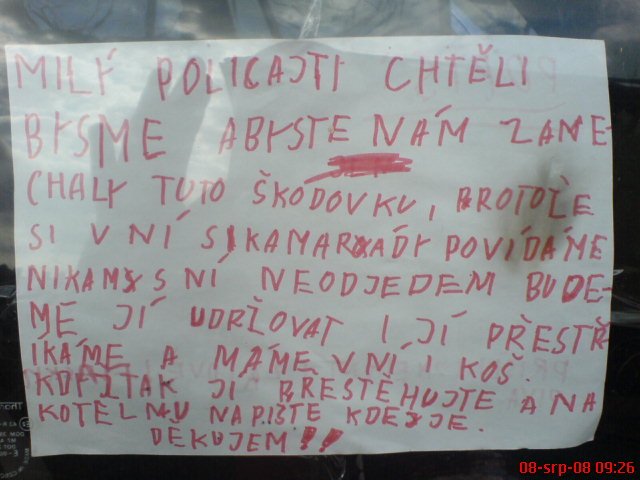 MILÝ POLICAJTI CHTĚLI
BYSME ABYSTE NÁM ZANE-
CHALY TUTO ŠKODOVKU, PROTOŽE
SI V NÍ S KAMARÁDY POVÍDÁME
NIKAM S NÍ NEODJEDEM BUDE-
ME JÍ UDRŽOVAT I JÍ PŘESTŘ-
ÍKÁME A MÁME V NÍ I KOŠ.
KDYŽTAK JI PŘESTĚHUJTE A NA
KOTELNU NAPIŠTE KDE JE.
DĚKUJEM!!
08-srp-08 09:26